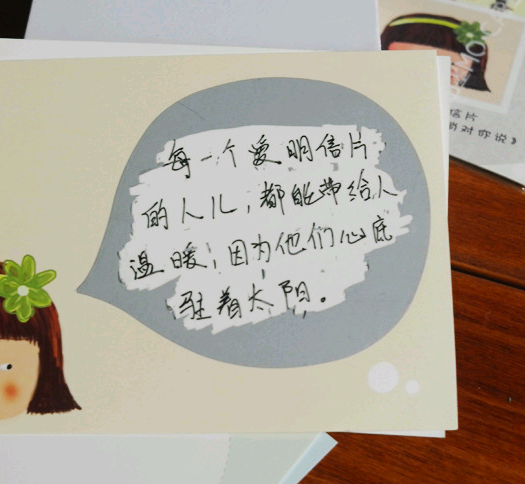 每一个爱明信片
的人儿，都能带给人
温暖，因为他们心底
驻着太阳。
信片
对你说》